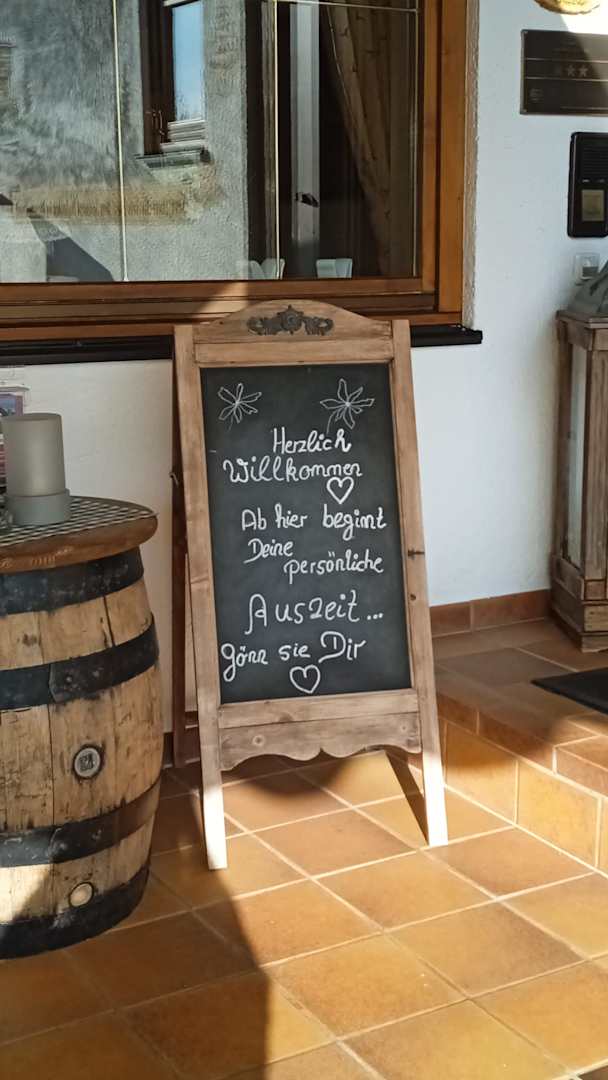 Herzlich
Willkommen
Ab hier beginnt
Deine
persönliche
Auszeit...
gönn sie Dir